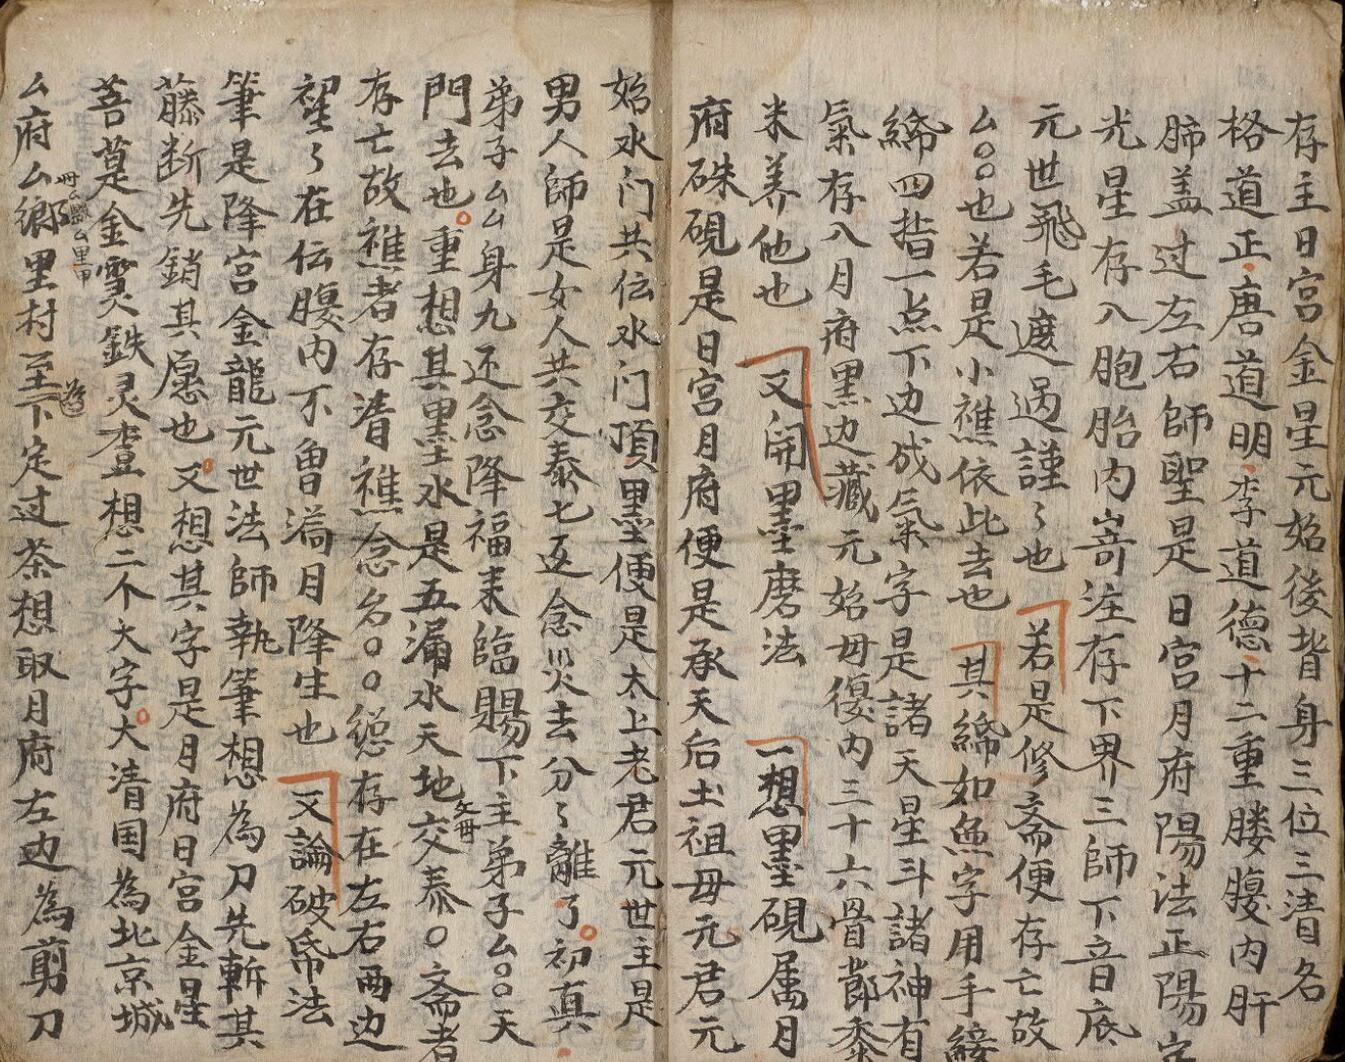 存主日宫金星元始後皆身三位三清名
格道正唐道明李道德十二重腰腹内肝
肺盖过左右師聖是日宮月府陽法正陽字
光星存入胞胎内寄注存下界三師下音底
元世飛毛遮过謹〻也 若是修斋便存亡故
厶〇〇也若是小襍依此去也 其締如魚字用手
締四指一点下边成氣字是諸天星斗諸神有
氣存入月府黑边藏元始母優内三十六骨節黍
米养他也 又開墨磨法 一想墨硯属月
府硃硯是日宫月府便是承天后土祖母元君元
始水门共伝水门頂墨便是太上老君元世主是
男人師是女人共交泰七返念災去分〻離了初真
弟子厶厶身九还念降福来臨賜下主弟子厶〇〇天
門去也重想其墨水是五漏水天地交泰〇斋者
存亡故襍者存清襍念名〇〇總存在左右两边
望〻在伝腹内不曾满月降生也 又論破帋法
筆是降宫金龍元世法師執筆想為刀先斬其
藤断先銷其愿也又想其字是月府日宫金星
菩萐金雲鉄灵查想二个大字大清国為北京城
厶府厶鄉里村至下定过茶想取月府左边為剪刀